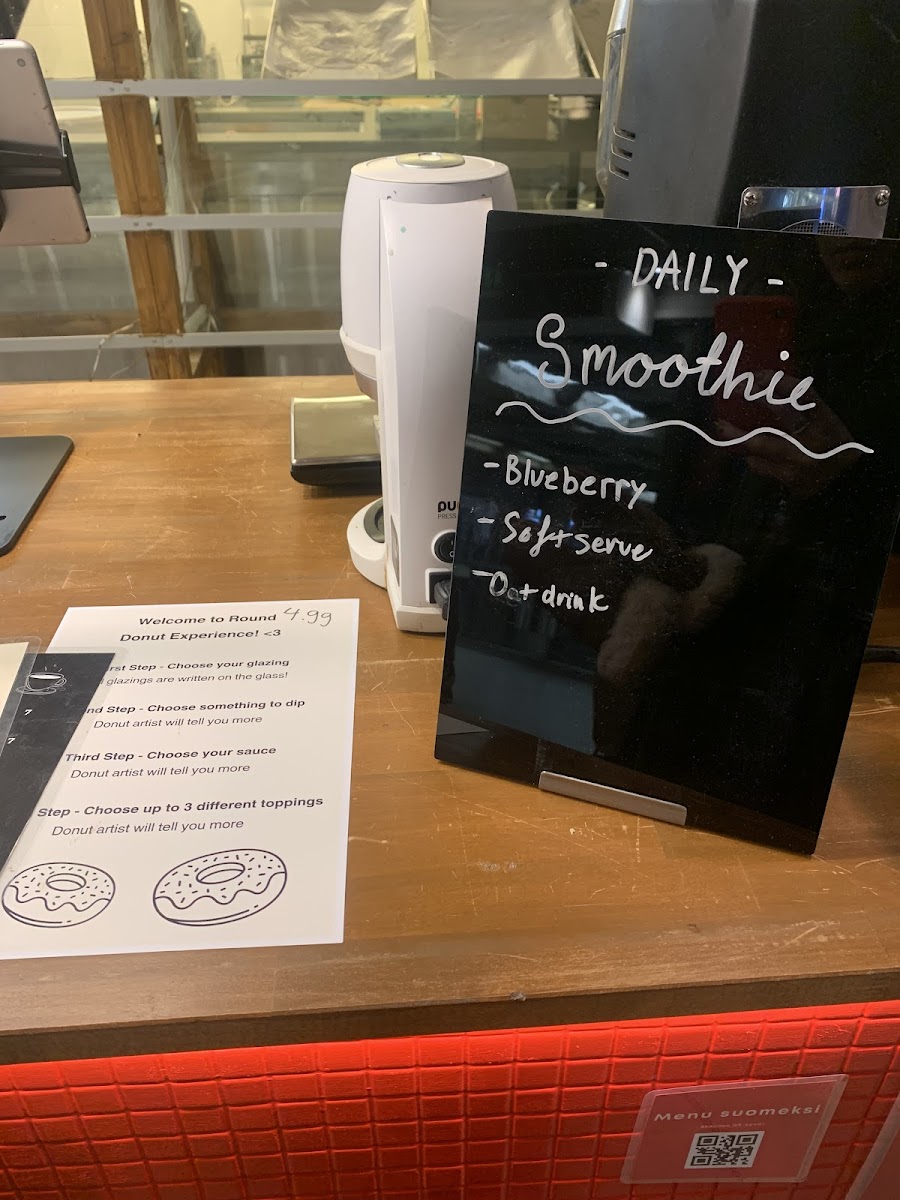 - DAILY -
Smoothie
- Blueberry
- Soft serve
- Oat drink
Welcome to Round 4.99
Donut Experience! <3
Step - Choose your glazing
glazings are written on the glass!
Step - Choose something to dip
Donut artist will tell you more
Third Step - Choose your sauce
Donut artist will tell you more
Step - Choose up to 3 different toppings
Donut artist will tell you more
7
7
Menu suomeksi